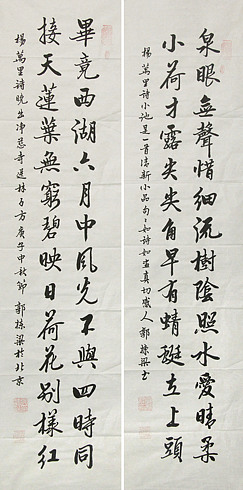 泉眼無聲惜細流樹陰照水愛晴柔
小荷才露尖尖角早有蜻蜓立上頭
楊萬里詩小池是一首清新小品句句如詩如畫真切感人郭棟梁書
畢竟西湖六月中風光不與四時同
接天蓮葉無窮碧映日荷花別樣紅
楊萬里詩曉出淨慈寺送林子方庚子中秋節郭棟梁於北京